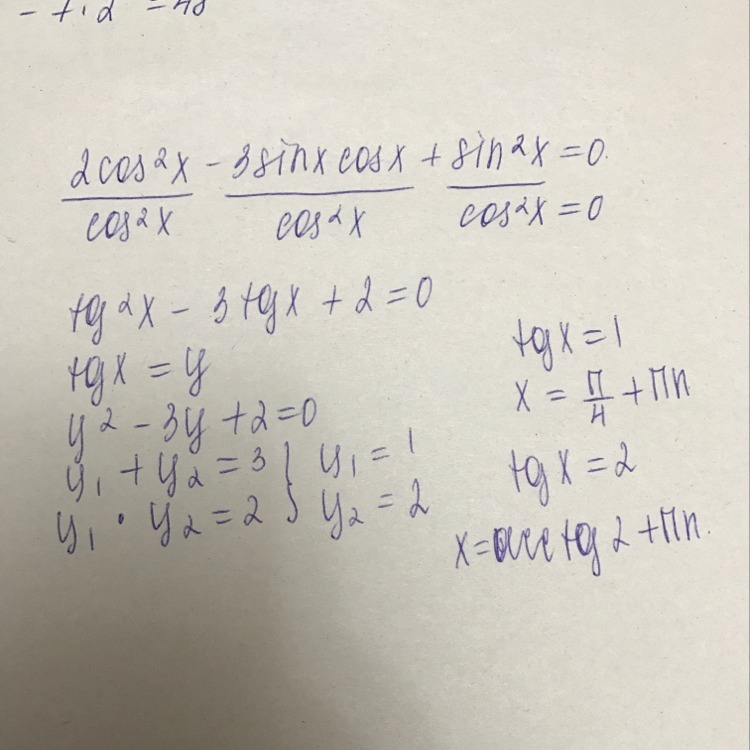 2cos²x - 3sinx cosx + sin²x = 0
cos²x cos²x cos²x = 0
tg²x - 3tgx + 2 = 0
tgx = y
y² - 3y + 2 = 0
y₁ + y₂ = 3 } y₁ = 1
y₁ · y₂ = 2 } y₂ = 2
tgx = 1
x = π/4 + πn
tgx = 2
x = arctg2 + πn.